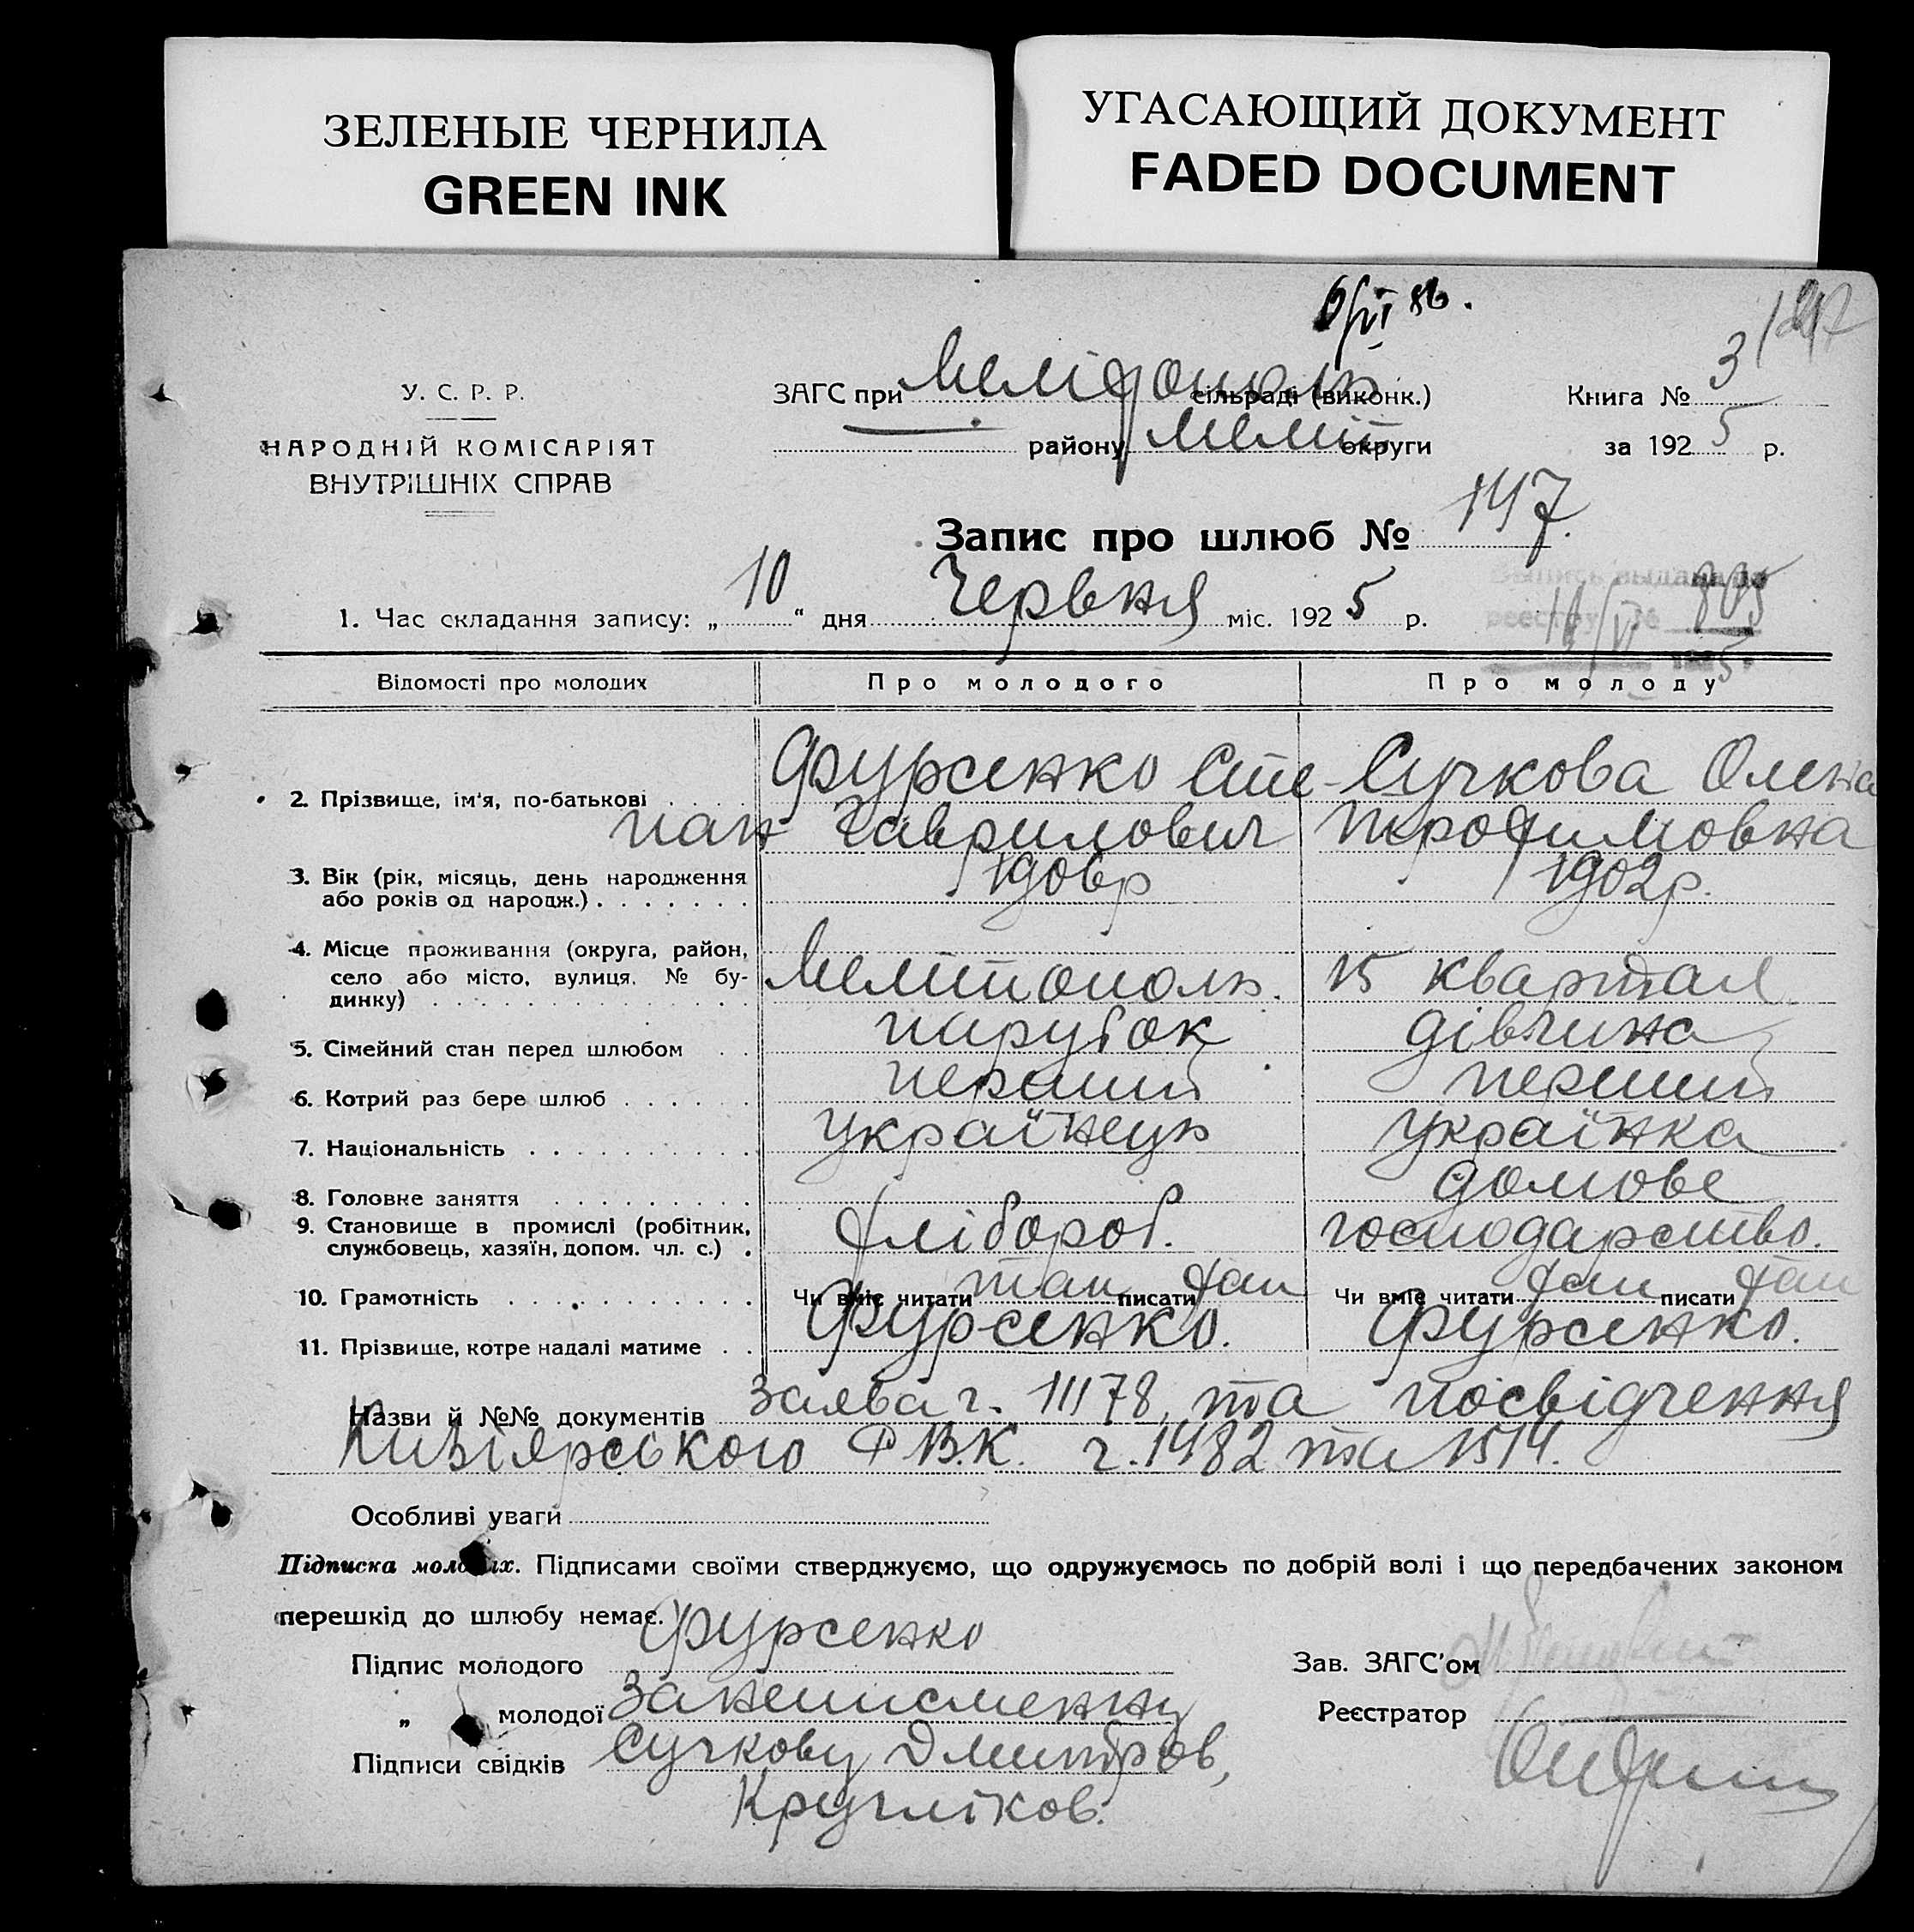 ЗЕЛЕНЫЕ ЧЕРНИЛА
GREEN INK
УГАСАЮЩИЙ ДОКУМЕНТ
FADED DOCUMENT
У. С. Р. Р.
НАРОДНІЙ КОМІСАРІЯТ
ВНУТРІШНІХ СПРАВ
ЗАГС при Мелітополь сільраді (виконк.)
району Меліт округи
Книга № 3
за 1925 р.
Запис про шлюб № 147.
1. Час складання запису: „10“ дня Червня міс. 1925 р.
Выпись выдана по
реестру № 805
Відомості про молодих Про молодого Про молоду
2. Прізвище, ім'я, по-батькові Фурсенко Сте- Сучкова Олена
пан Гаврилович Трофимовна
3. Вік (рік, місяць, день народження 1906р 1902р.
або років од народж.)
4. Місце проживання (округа, район,
село або місто, вулиця, № бу- Мелітополь. 15 квартал
динку)
5. Сімейний стан перед шлюбом парубок дівчина
6. Котрий раз бере шлюб перший перший
7. Національність українець українка
8. Головне заняття домове
9. Становище в промислі (робітник, хлібороб. господарство.
службовець, хазяїн, допом. чл. с.)
10. Грамотність Чи вміє читати так писати так Чи вміє читати так писати так
11. Прізвище, котре надалі матиме Фурсенко. Фурсенко.
Назви й №№ документів Заява г. 11178, та посвідчення
Кизіярського Р.В.К. г. 1482 та 1514.
Особливі уваги
Підписка молодих. Підписами своїми стверджуємо, що одружуємось по добрій волі і що передбачених законом
перешкід до шлюбу немає.
Підпис молодого Фурсенко
„ молодої За неписменну
Підписи свідків Сучкову Дмитров,
Кругліков.
Зав. ЗАГС'ом
Реєстратор